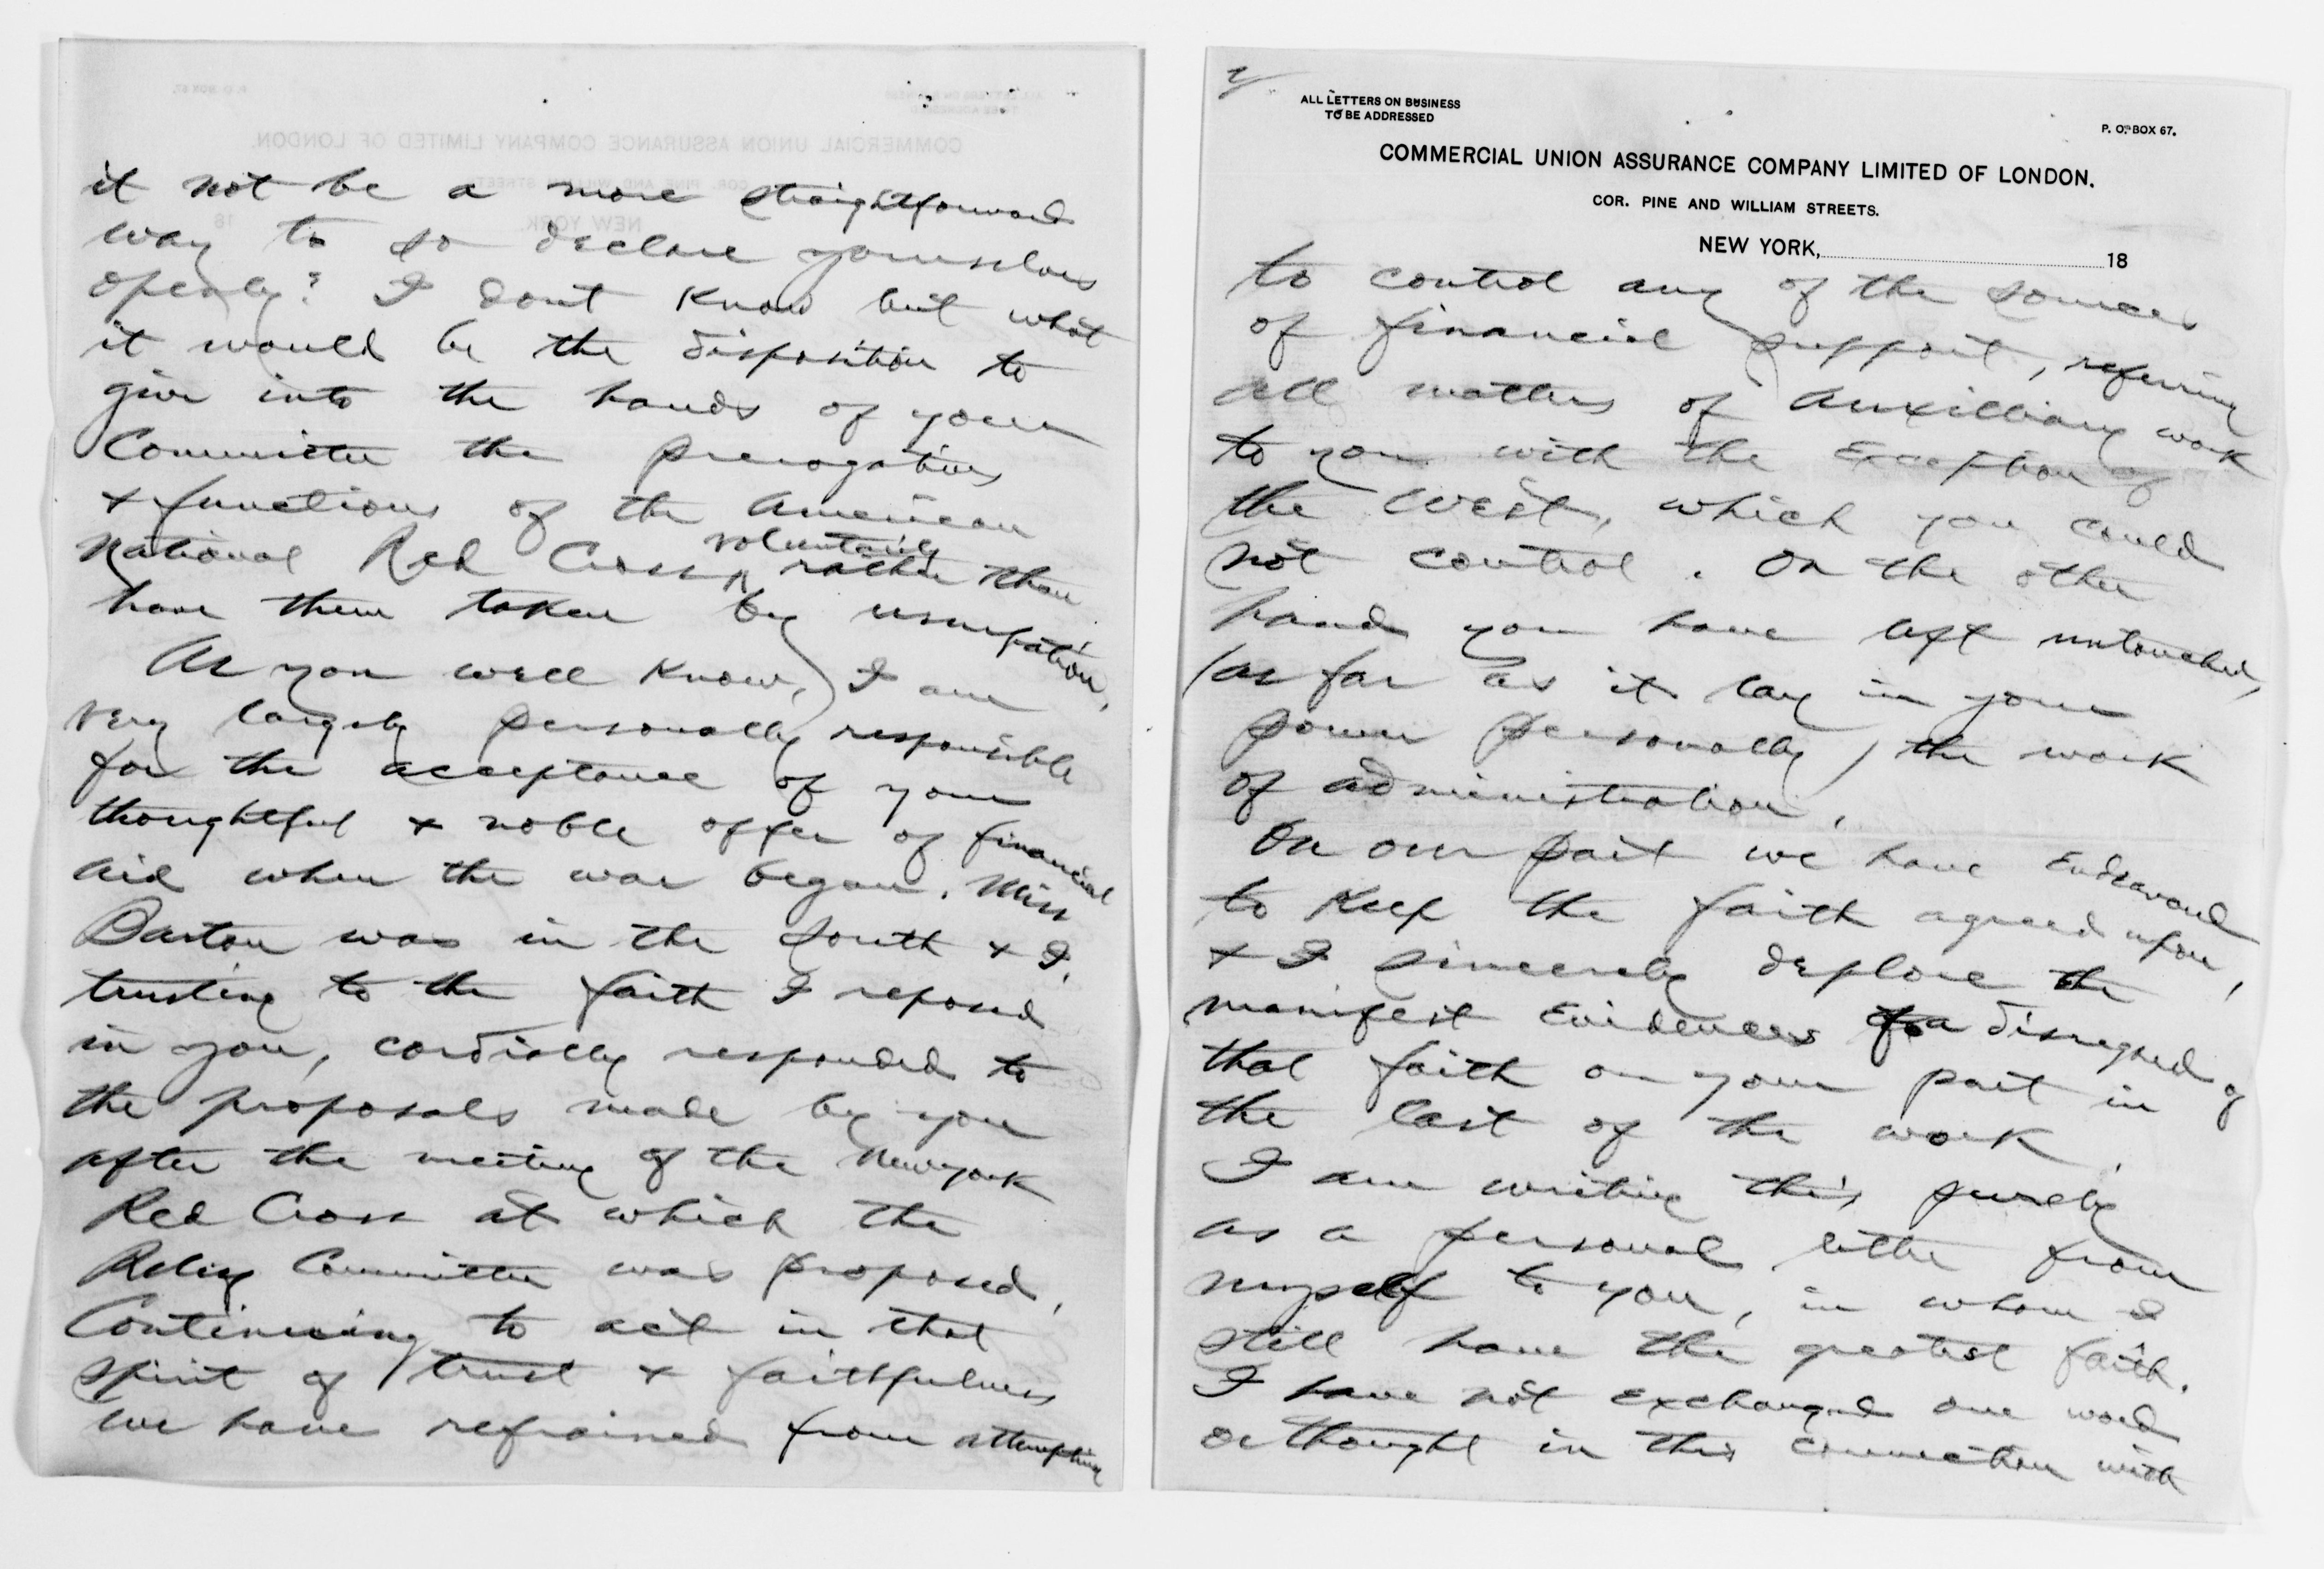 it not be a more straightforward
way to so declare yourselves
openly? I dont know but what
it would be the disposition to
give into the hands of your
Committee the prerogatives
& functions of the American
voluntarily
National Red Cross ^ rather than
have them taken by usurpation.
As you well know, I am
very largely personally responsible
for the acceptance of your
thoughtful & noble offer of financial
aid when the war began. Miss
Barton was in the South & I,
trusting to the faith I reposed
in you, cordially responded to
the proposals made by you
after the meeting of the New York
Red Cross at which the
Relief Committee was proposed.
Continuing to act in that
spirit of trust & faithfulness
we have refrained from attempting
2/
ALL LETTERS ON BUSINESS
TO BE ADDRESSED
P. O. BOX 67.
COMMERCIAL UNION ASSURANCE COMPANY LIMITED OF LONDON.
COR. PINE AND WILLIAM STREETS.
NEW YORK, 18
to control any of the sources
of financial support, referring
all matters of Auxilliary work
to you with the Exception of
the West, which you could
not control. On the other
hand you have left untouched,
(as far as it lay in your
power personally) the work
of administration.
On our part we have Endeavored
to keep the faith agreed upon,
& I sincerely deplore the
manifest Evidences of a disregard of
that faith on your part in
the last of the work.
I am writing this purely
as a personal letter from
myself to you, in whom I
still have the greatest faith.
I have not exchanged one word
or thought in this connection with